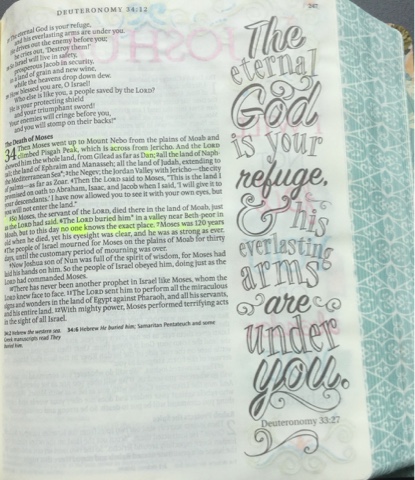 DEUTERONOMY 34:12
247
The eternal God is your refuge,
and his everlasting arms are under you.
He drives out the enemy before you;
he cries out, 'Destroy them!'
So Israel will live in safety,
prosperous Jacob in security,
in a land of grain and new wine,
while the heavens drop down dew.
How blessed you are, O Israel!
Who else is like you, a people saved by the LORD?
He is your protecting shield
and your triumphant sword!
Your enemies will cringe before you,
and you will stomp on their backs!"
The Death of Moses
34 Then Moses went up to Mount Nebo from the plains of Moab and
climbed Pisgah Peak, which is across from Jericho. And the LORD
showed him the whole land, from Gilead as far as Dan; 2all the land of Naph-
tali; the land of Ephraim and Manasseh; all the land of Judah, extending to
the Mediterranean Sea*; 3the Negev; the Jordan Valley with Jericho—the city
of palms—as far as Zoar. 4Then the LORD said to Moses, "This is the land I
promised on oath to Abraham, Isaac, and Jacob when I said, 'I will give it to
your descendants.' I have now allowed you to see it with your own eyes, but
you will not enter the land."
5So Moses, the servant of the LORD, died there in the land of Moab, just
as the LORD had said. 6The LORD buried him* in a valley near Beth-peor in
Moab, but to this day no one knows the exact place. 7Moses was 120 years
old when he died, yet his eyesight was clear, and he was as strong as ever.
8The people of Israel mourned for Moses on the plains of Moab for thirty
days, until the customary period of mourning was over.
9Now Joshua son of Nun was full of the spirit of wisdom, for Moses had
laid his hands on him. So the people of Israel obeyed him, doing just as the
LORD had commanded Moses.
10There has never been another prophet in Israel like Moses, whom the
LORD knew face to face. 11The LORD sent him to perform all the miraculous
signs and wonders in the land of Egypt against Pharaoh, and all his servants,
and his entire land. 12With mighty power, Moses performed terrifying acts
in the sight of all Israel.
34:2 Hebrew the western sea. 34:6 Hebrew He buried him; Samaritan Pentateuch and some
Greek manuscripts read They
buried him.
The
eternal
God
is your
refuge,
& his
everlasting
arms
are
under
you.
Deuteronomy 33:27